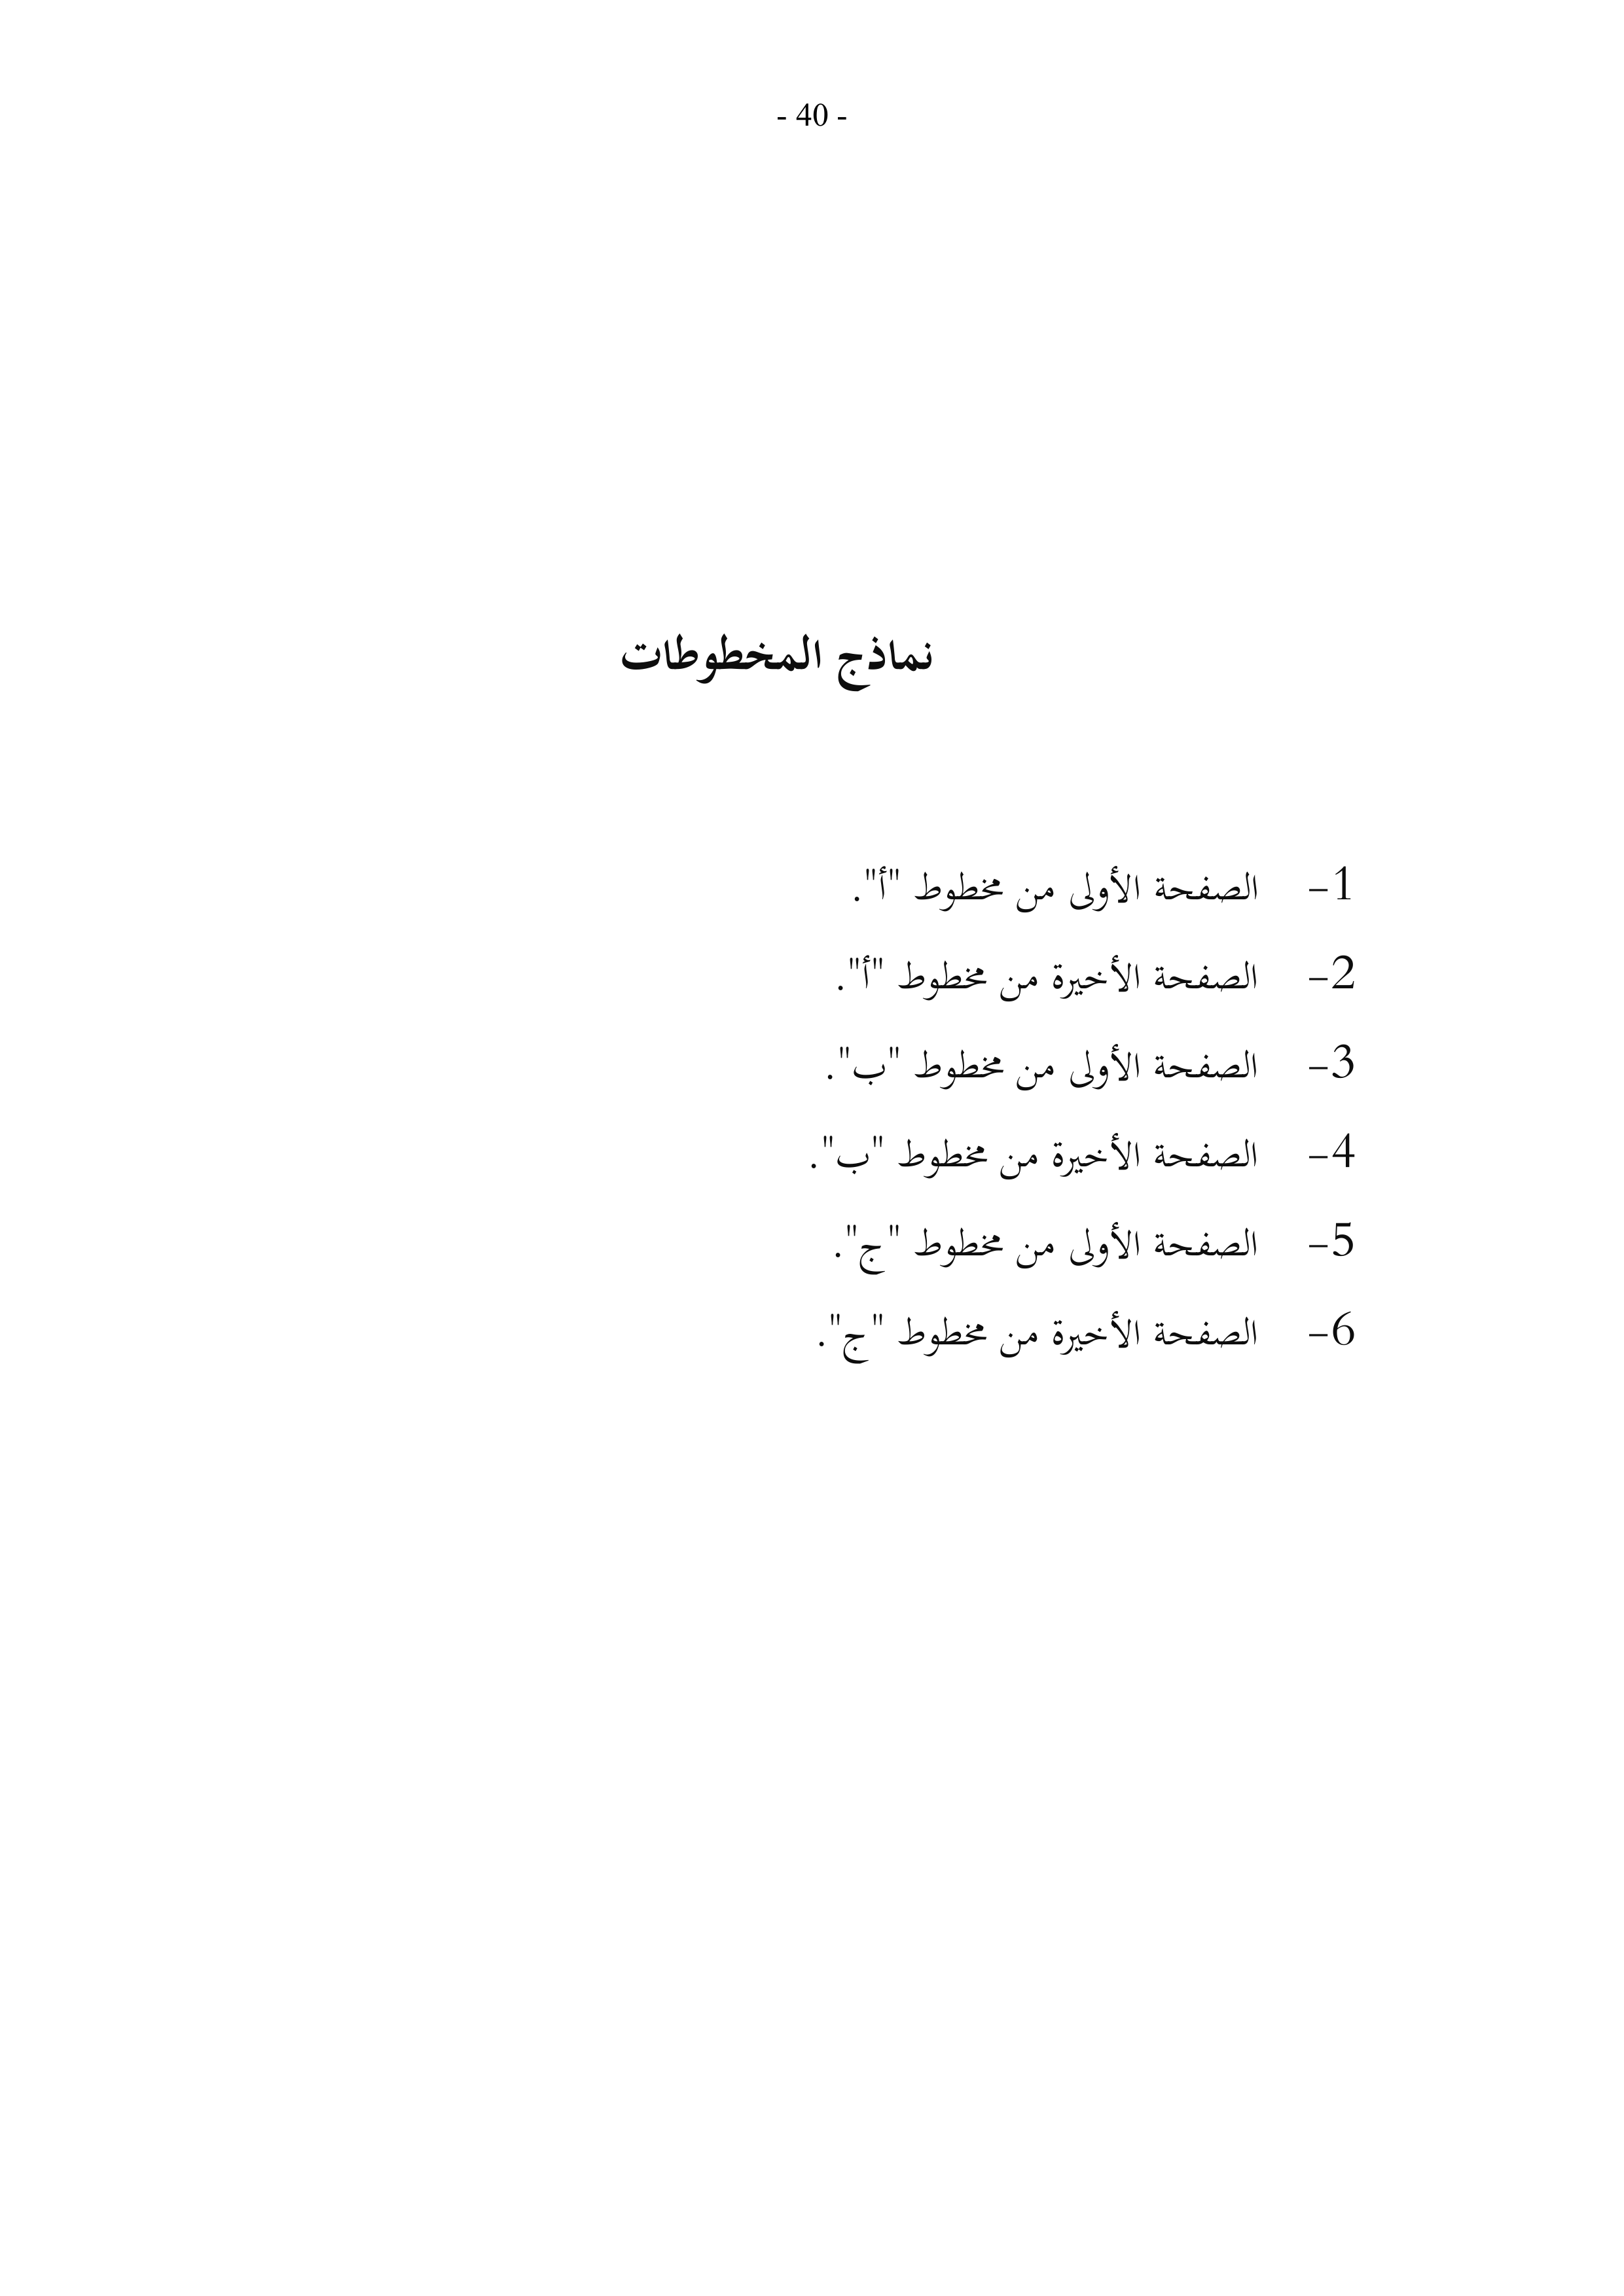 - 40 -
نماذج المخطوطات
1- الصفحة الأولى من مخطوط "أ".
2- الصفحة الأخيرة من مخطوط "أ".
3- الصفحة الأولى من مخطوط "ب".
4- الصفحة الأخيرة من مخطوط "ب".
5- الصفحة الأولى من مخطوط "ج".
6- الصفحة الأخيرة من مخطوط "ج".